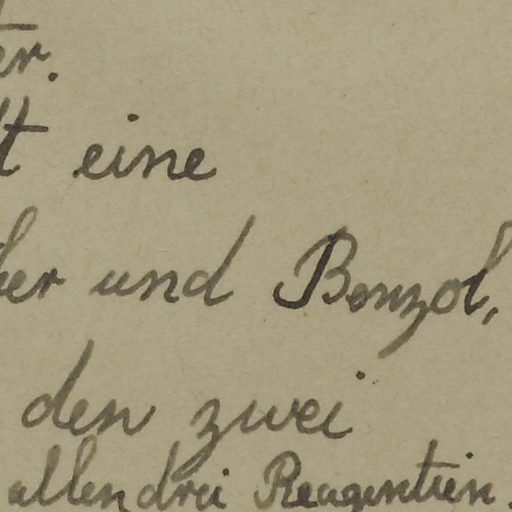 er.
t eine
ber und Benzol,
den zwei
allen drei Reagentien.